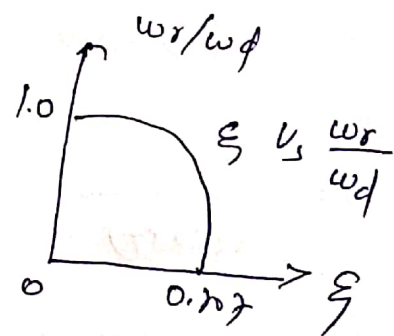 ωr/ωd
1.0
ξ Vs ωr/ωd
0
0.707
ξ